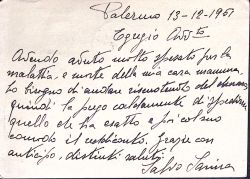 Palermo 13-12-1951
Egregio Avv.to
Avendo avuto molto spesato per la
malattia, e morte della mia cara mamma,
ho bisogno di andare riscuotendo del
quindi la prego caldamente di spedirmi
quello che ha esatto e più
comodo il Grazie con
anticipo, distinti saluti
Salvo